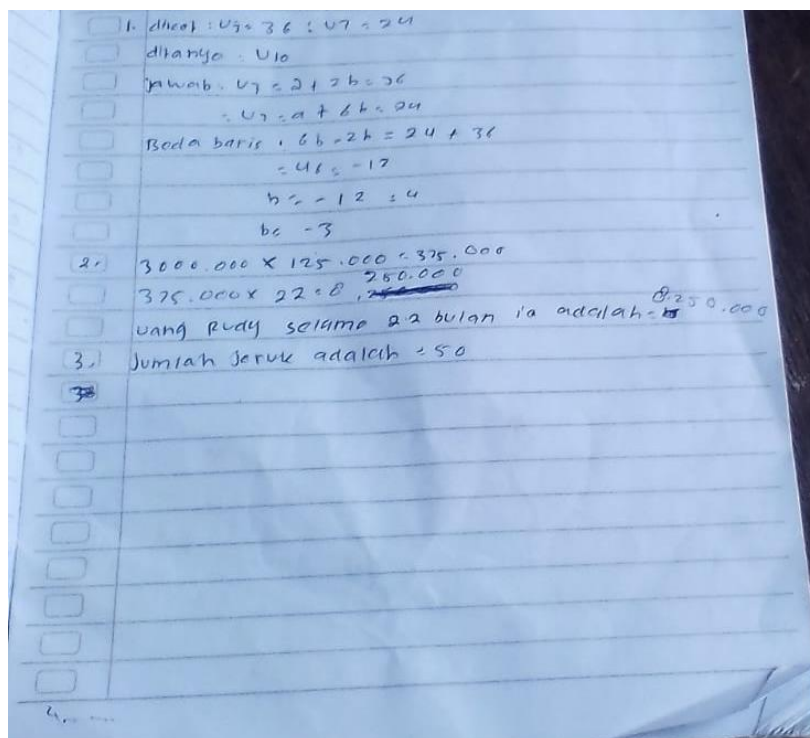 1. diket : U3 = 36 : U7 = 24
ditanya : U10
jawab. U3 = a + 2b = 36
= U7 = a + 6b = 24
Beda baris : 6b - 2b = 24 + 36
= 4b = -12
b = -12 : 4
b = -3
2. 3000.000 x 125.000 = 375.000
375.000 x 22 = 8.250.000
uang Rudy selama 22 bulan ia adalah = 8.250.000
3.) Jumlah Jeruk adalah = 50